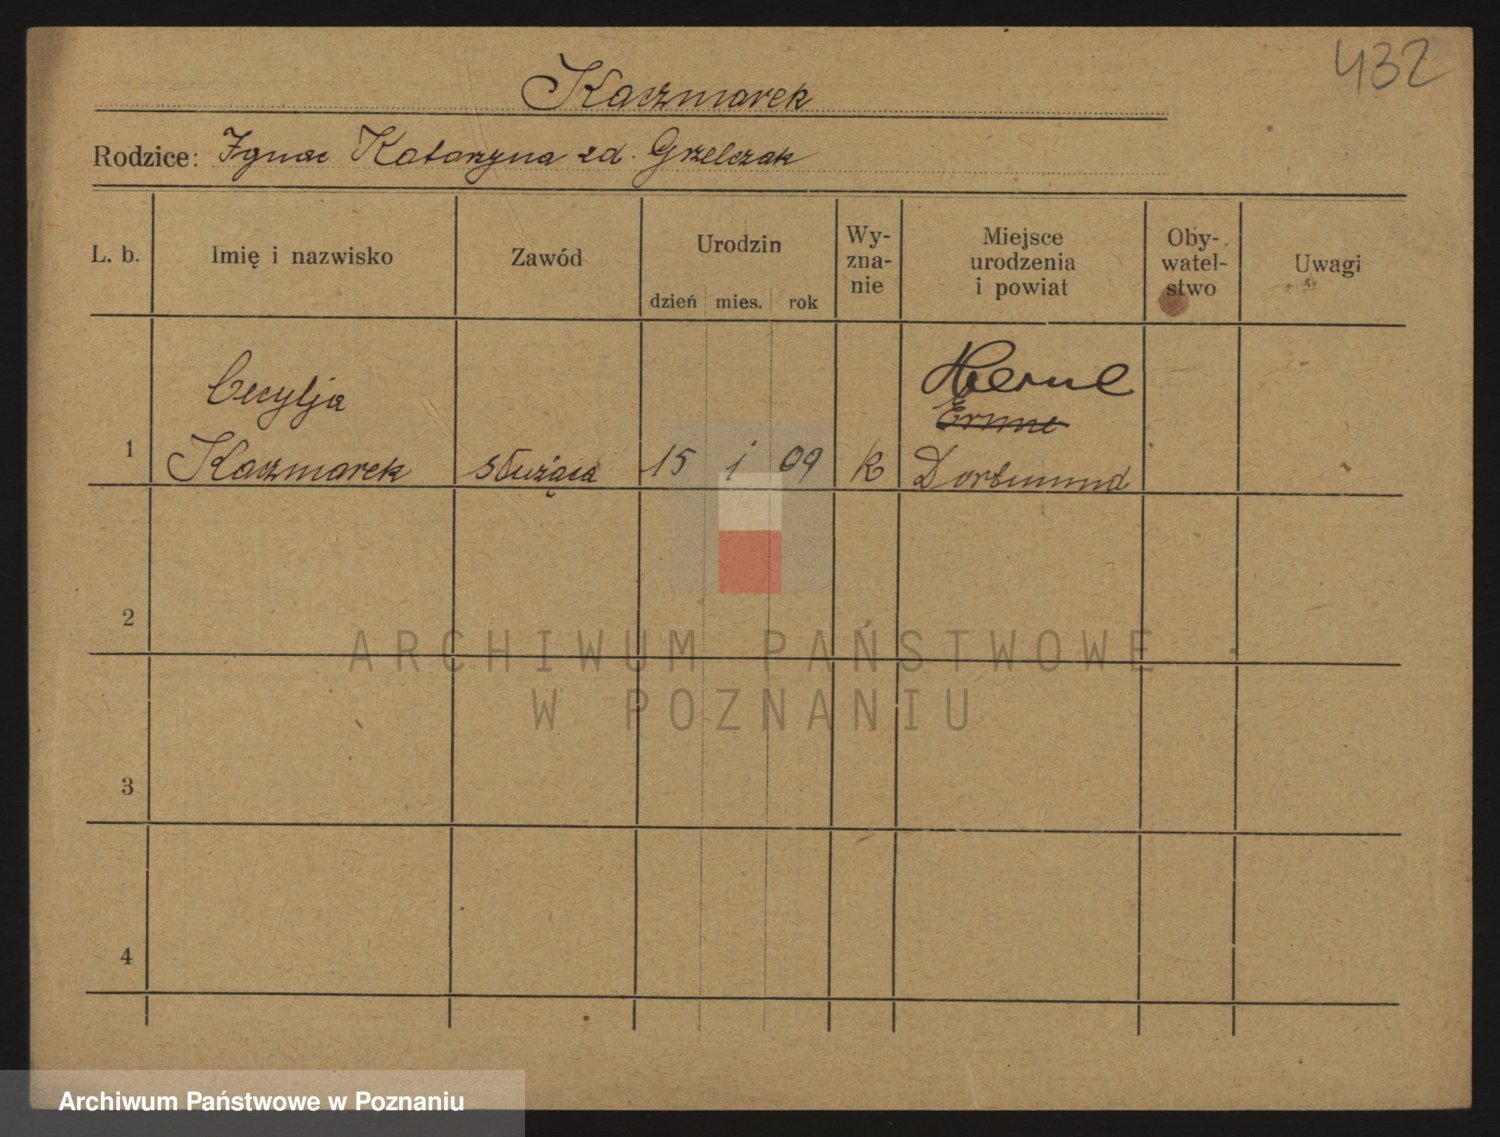 432
Kaczmarek
Rodzice: Ignac Katarzyna zd. Grzelczak
L. b.
Imię i nazwisko
Zawód
Urodzin
dzień mies. rok
Wy-
zna-
nie
Miejsce
urodzenia
i powiat
Oby-
watel-
stwo
Uwagi
1
Cecylja
Kaczmarek
służąca
15 i 09
k
Herne
Erme
Dortmund
2
3
4
ARCHIWUM PAŃSTWOWE
W POZNANIU
Archiwum Państwowe w Poznaniu